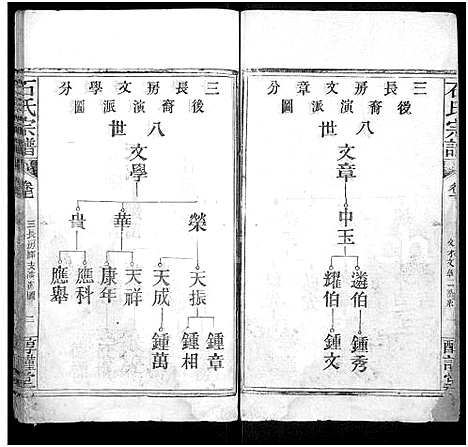 石氏宗譜
三長房文章分
後裔演派圖
八世
文章
中玉
遴伯
耀伯
鍾秀
鍾文
三長房文學分
後裔演派圖
八世
文學
榮
華
貴
天振
天成
天祥
康年
應科
應舉
鍾章
鍾相
鍾萬
石氏宗譜